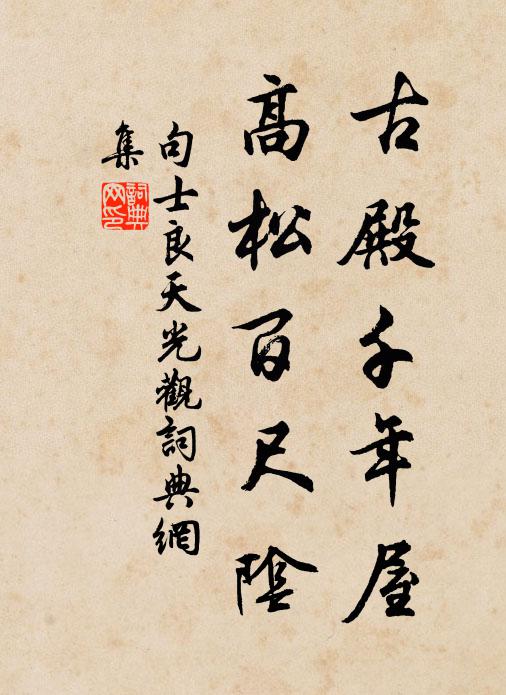 古殿千年屋
高松百尺陰
句士良天光觀詞典網
集
詞典網印